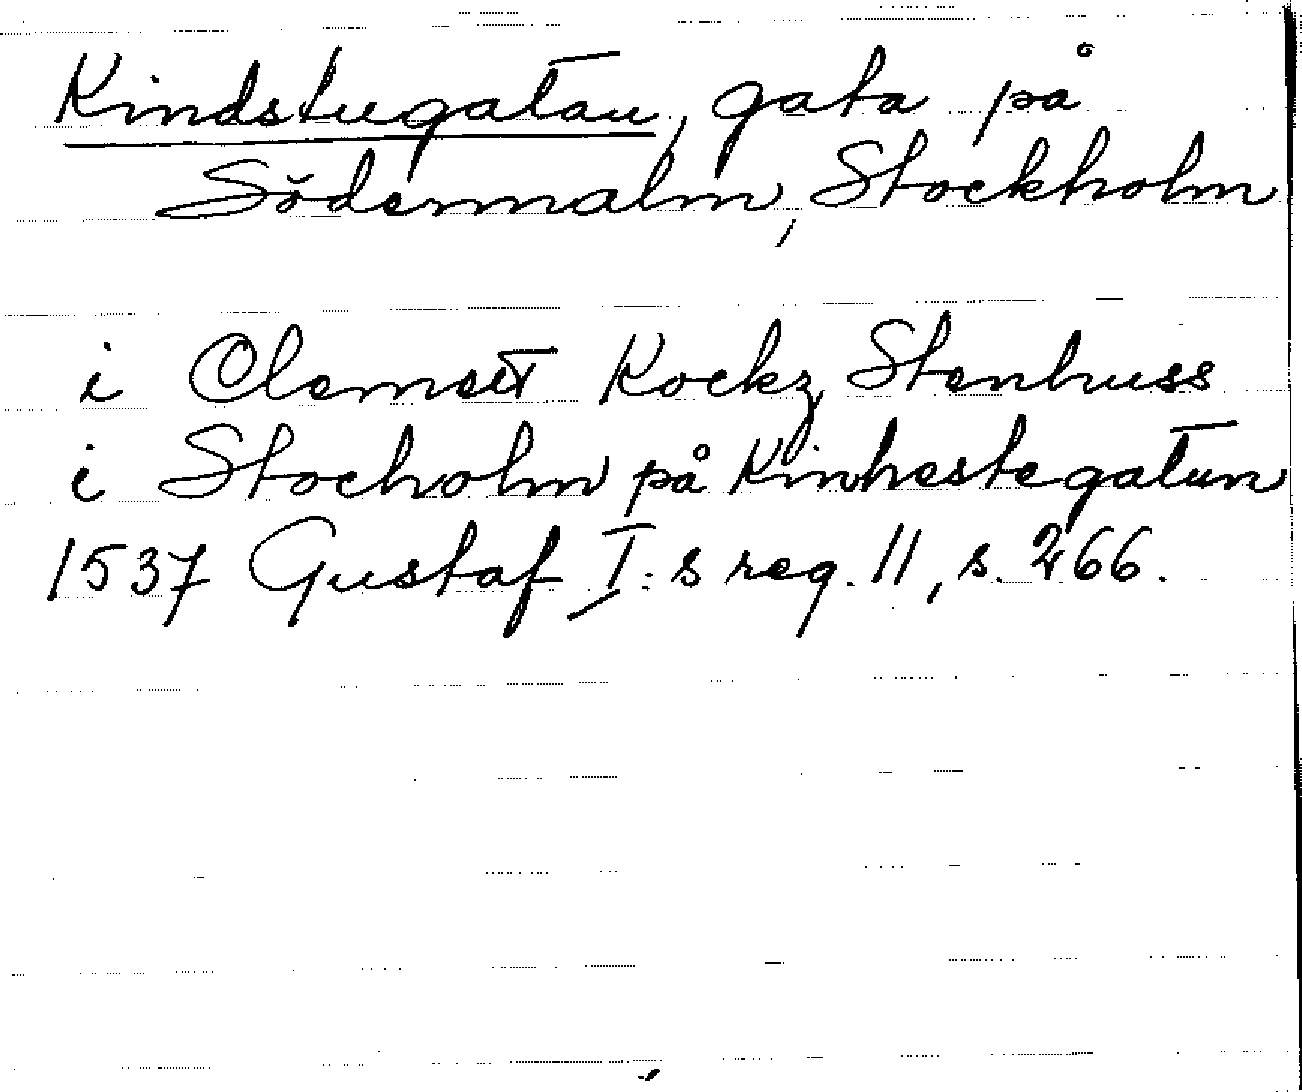 Kindstugatan, gata på
Södermalm, Stockholm
i Clemett Kockz Stenhuss
i Stocholm på Kinhestegatun
1537 Gustaf I:s reg. 11, s. 266.